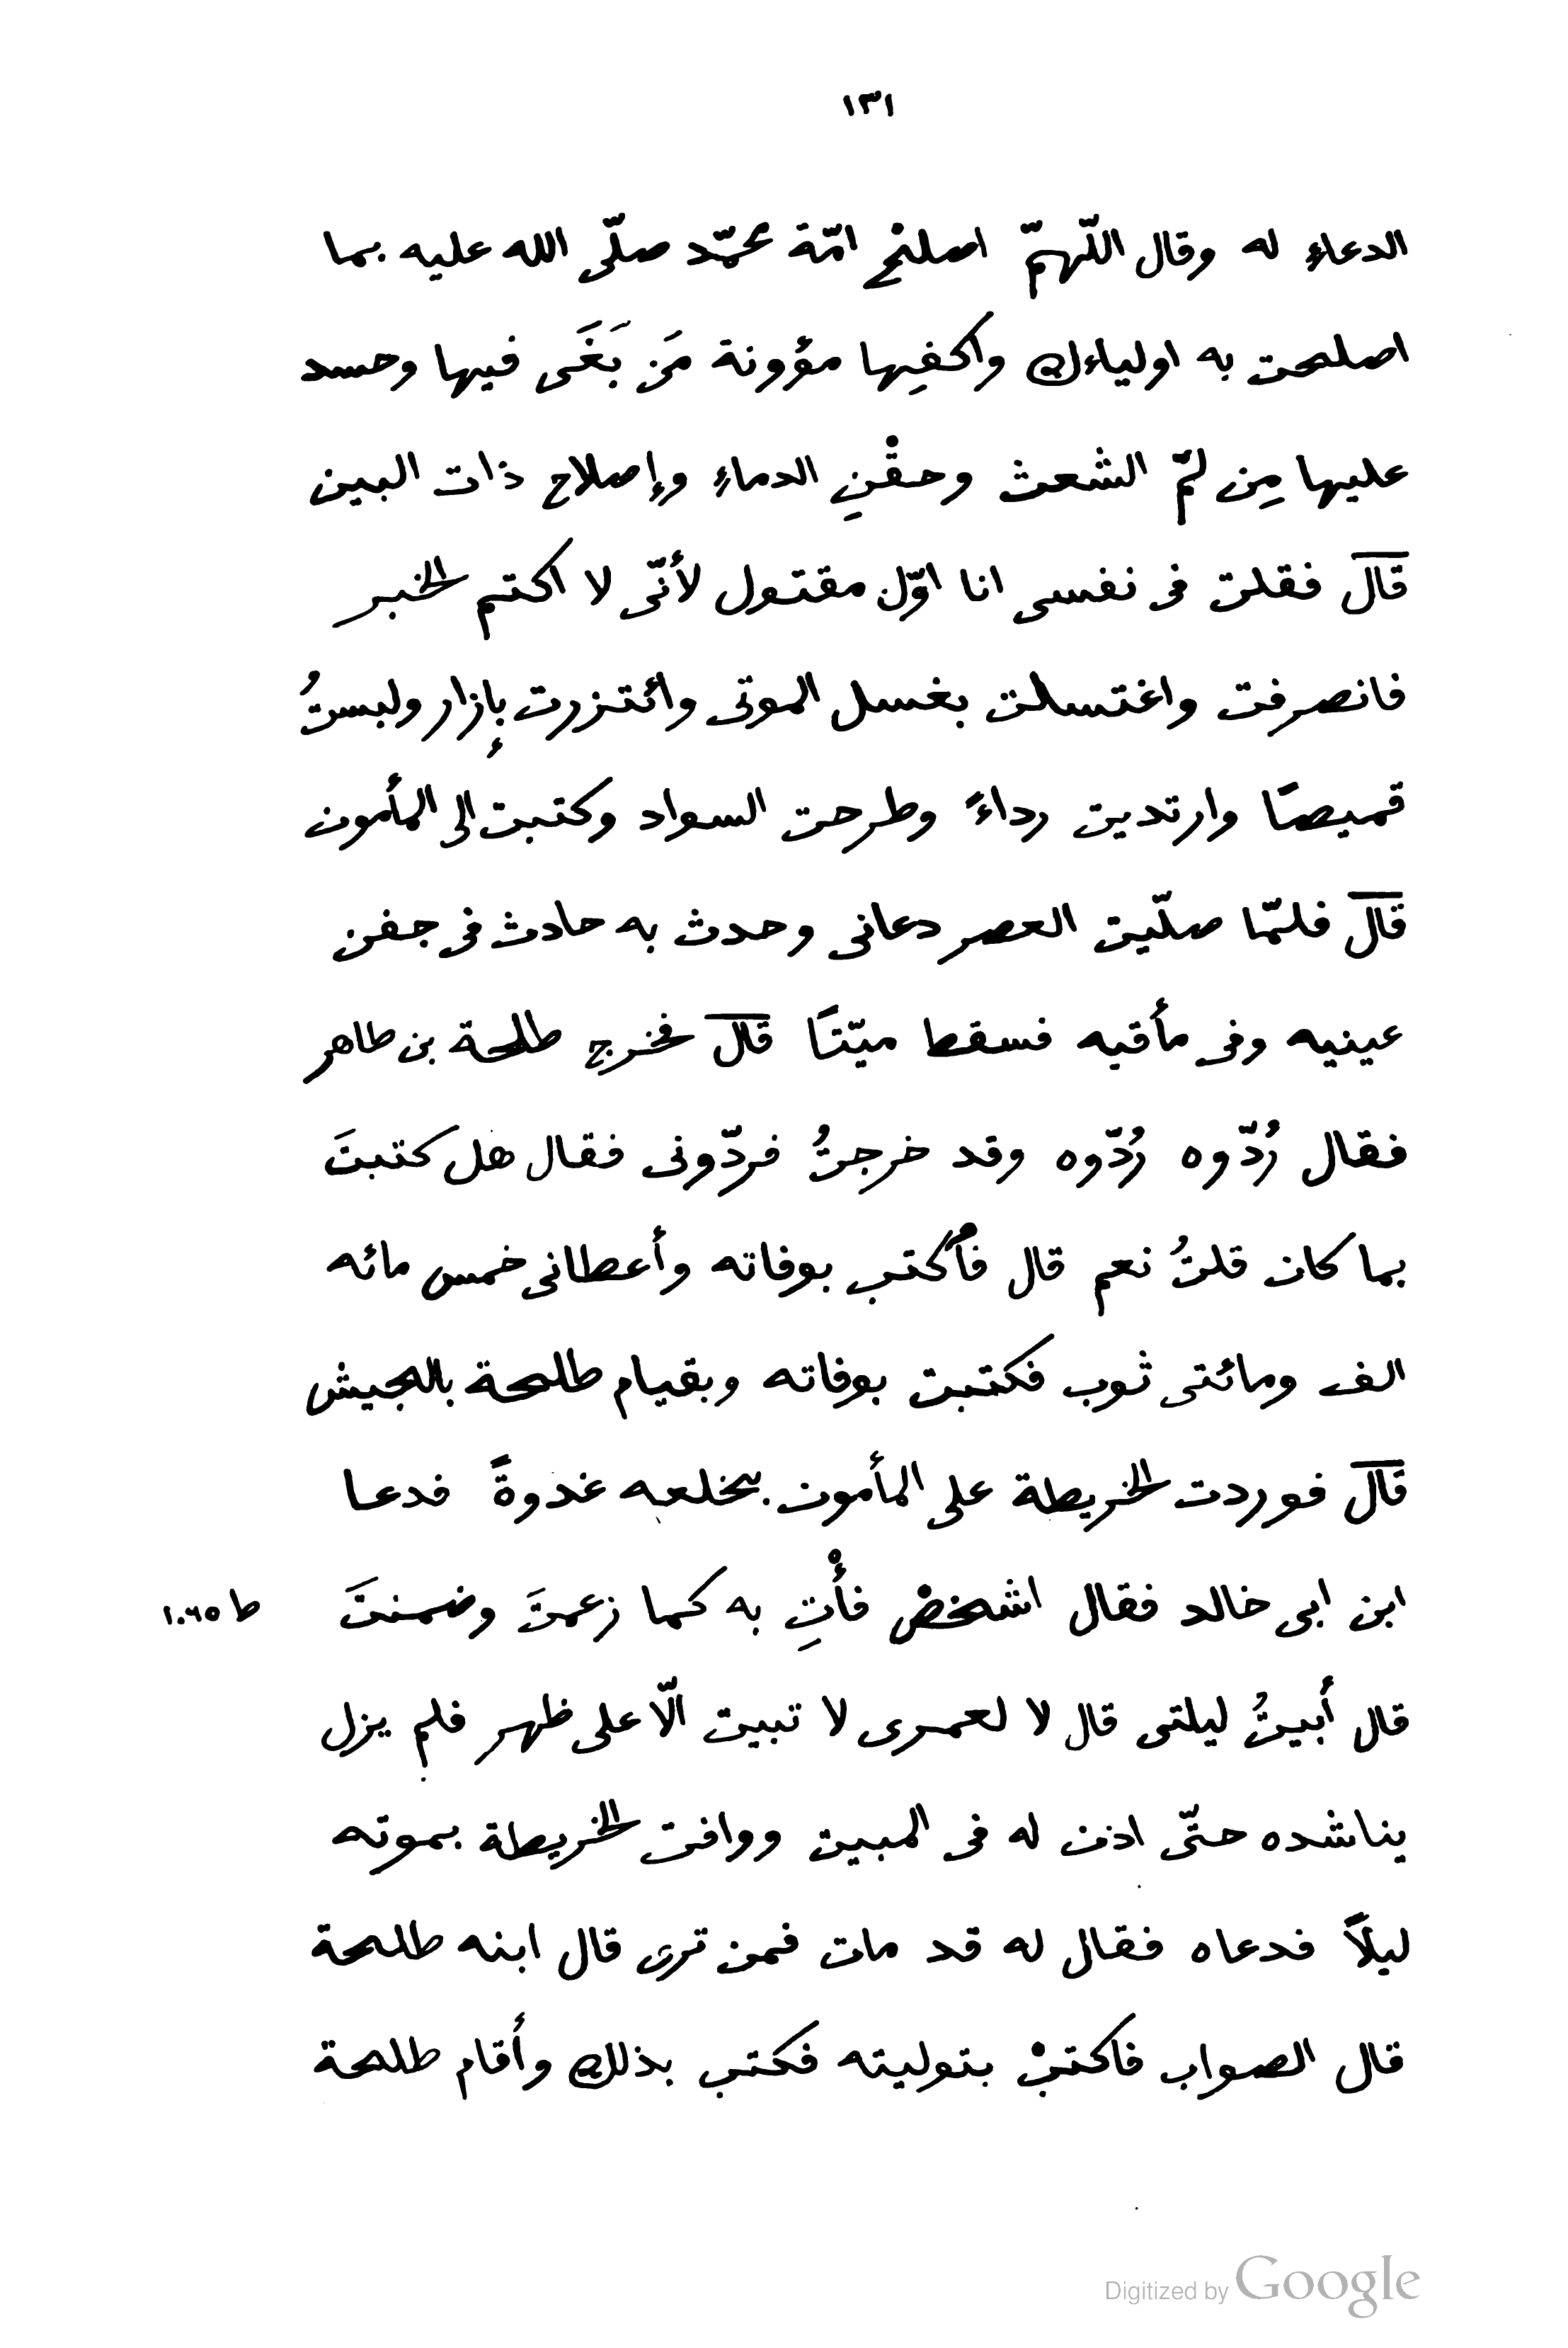 ١٣١
الدعاءِ له وقال اللّهمّ اصلحْ امّة محمّد صلّى الله عليه بما
اصلحت به اولياءك واكفِها مؤونة مَن بَغَى فيها وحسد
عليها مِن لمّ الشعث وحقْنِ الدماءِ وإصلاح ذات البين
قال فقلت فى نفسى انا اوّل مقتول لأنّى لا اكتم الخبر
فانصرفت واغتسلت بغسل الموتى وائتزرت بإزار ولبستُ
قميصًا وارتديت رداءً وطرحت السواد وكتبت الى المأمون
قال فلمّا صلّيت العصر دعانى وحدث به حادث فى جفن
عينيه وفى مأقيه فسقط ميّتًا قال فخرج طلحة بن طاهر
فقال رُدّوه رُدّوه وقد خرجتُ فردّونى فقال هل كتبتَ
بما كان قلتُ نعم قال فأكتب بوفاته وأعطانى خمس مائه
الف ومائتى ثوب فكتبت بوفاته وبقيام طلحة بالجيش
قال فوردت الخريطة على المأمون بخلعه غدوةً فدعا
ابن ابى خالد فقال اشخصْ فأْتِ به كما زعمتَ وضمنتَ ط ١٠٦٥
قال أبيتُ ليلتى قال لا لعمرى لا تبيت الّا على ظهر فلم يزل
يناشده حتّى اذن له فى المبيت ووافت الخريطة بموته
ليلاً فدعاه فقال له قد مات فمن ترى قال ابنه طلحة
قال الصواب فاكتبْ بتوليته فكتب بذلك وأقام طلحة
Digitized by Google